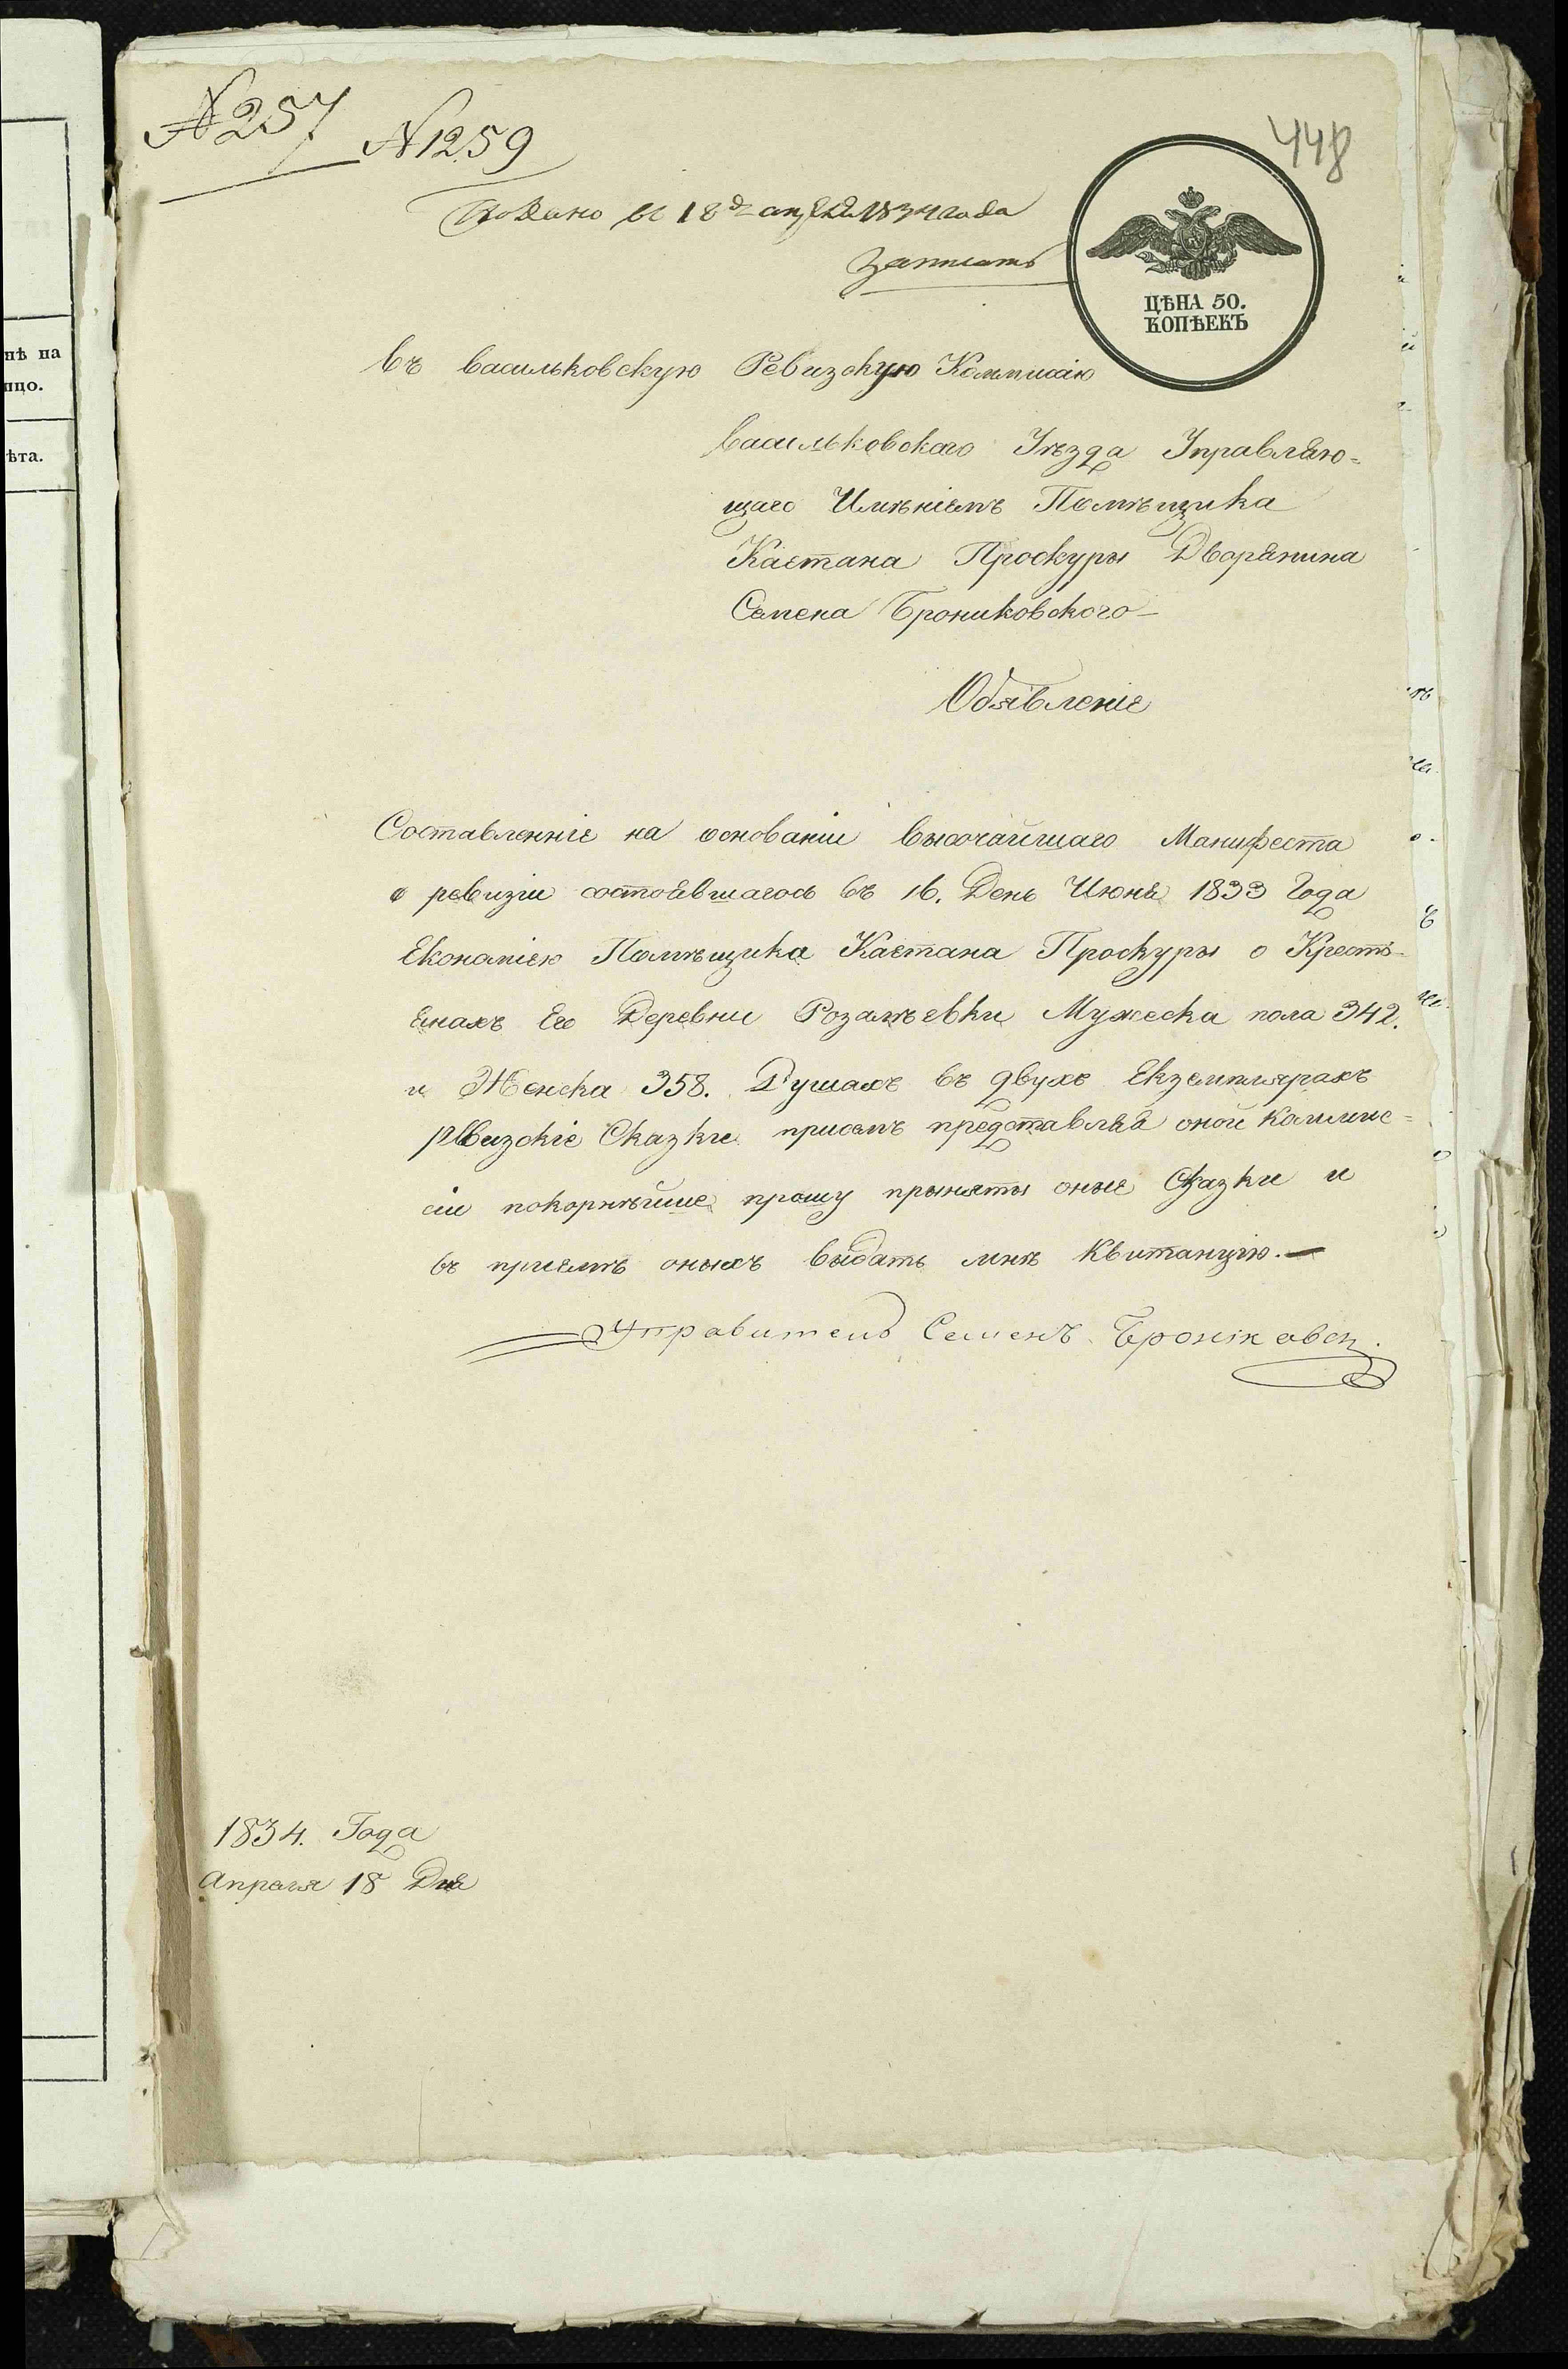 №257
№1259
448
Подано въ 18 д. апреля 1834 года
Записать
ЦѢНА 50.
КОПѢЕКЪ
въ васильковскую Ревизскую Коммисію
васильковского Уѣзда Управляю=
щаго Имѣніемъ Помѣщика
Каетана Проскуры Дворянина
Семена Брониковского—
Обявленіе
Составленніе на основаніи высочайшаго Манифеста
о ревизіи состоявшагось въ 16. День Июня 1833 Года
Економіею Помѣщика Каетана Проскуры о Кресть-
янахъ Его Деревни Розалѣевки Мужеска пола 342.
и Женска 358. Душахъ въ двухъ Екземплярахъ
рѣвизскіе Сказки присемъ представляя оной Коммис=
сіи покорнѣйше прошу прыняты оные Сказки и
въ приемѣ оныхъ выдать мнѣ Квитанцію.—
Управитель Семенъ Броніковсц.
1834. Года
апреля 18 Дня
нѣ на
ицо.
ѣта.